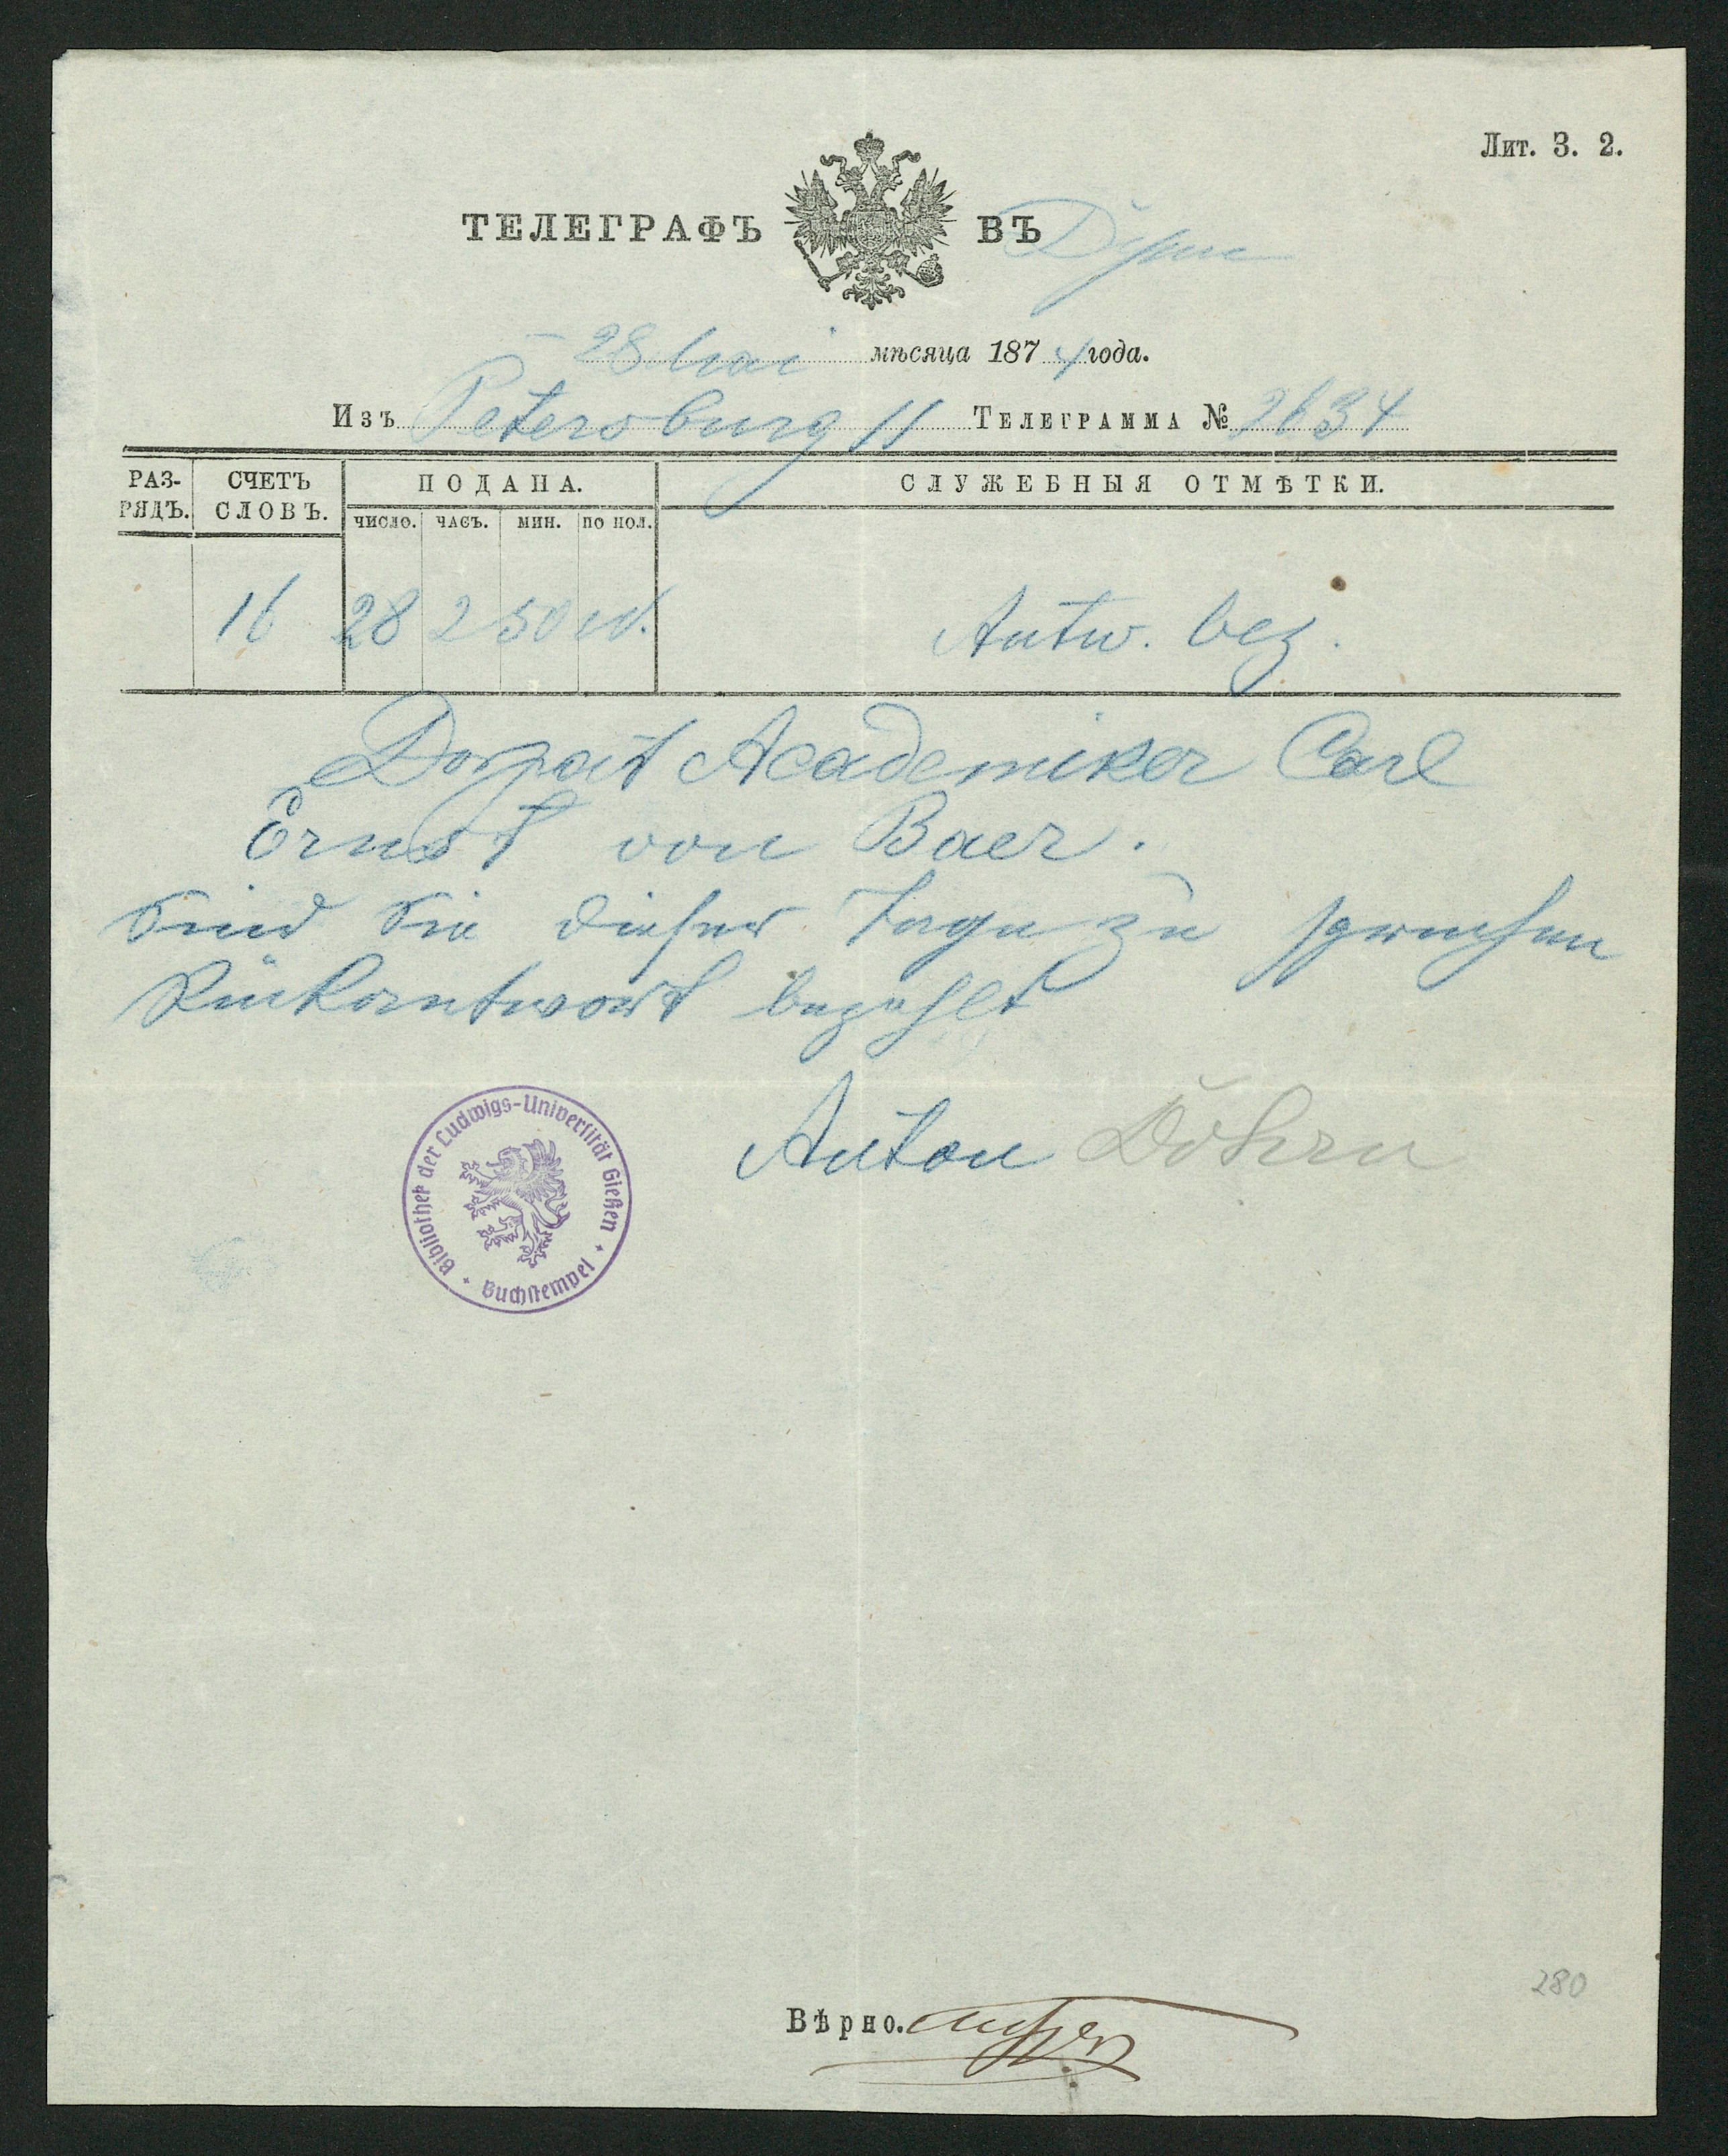 Лит. З. 2.
ТЕЛЕГРАФЪ ВЪ
28 Mai мѣсяца 1874 года.
Изъ Petersburg 11 ТЕЛЕГРАММА № 2634
РАЗ-
РЯДЪ.
СЧЕТЪ
СЛОВЪ.
ПОДАНА.
СЛУЖЕБНЫЯ ОТМѢТКИ.
ЧИСЛО. ЧАСЪ. МИН. ПО ПОЛ.
16 28 2 50 Antw. bez.
Dorpat Academiker Carl
Ernst von Baer.
Sind Sie dieser Tage zu sprechen
Rükantwort bezahlt
Anton Döhrn
Bibliothek der Ludwigs-Universität Gießen
Buchstempel
Вѣрно.
280